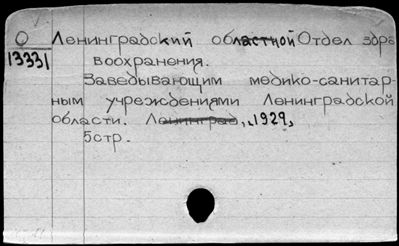 О Ленинградский областной Отдел здра
13331 воохранения.
Заведывающим медико-санитар-
ным учреждениями Ленинградской
области. Ленинград, 1929,
5стр.